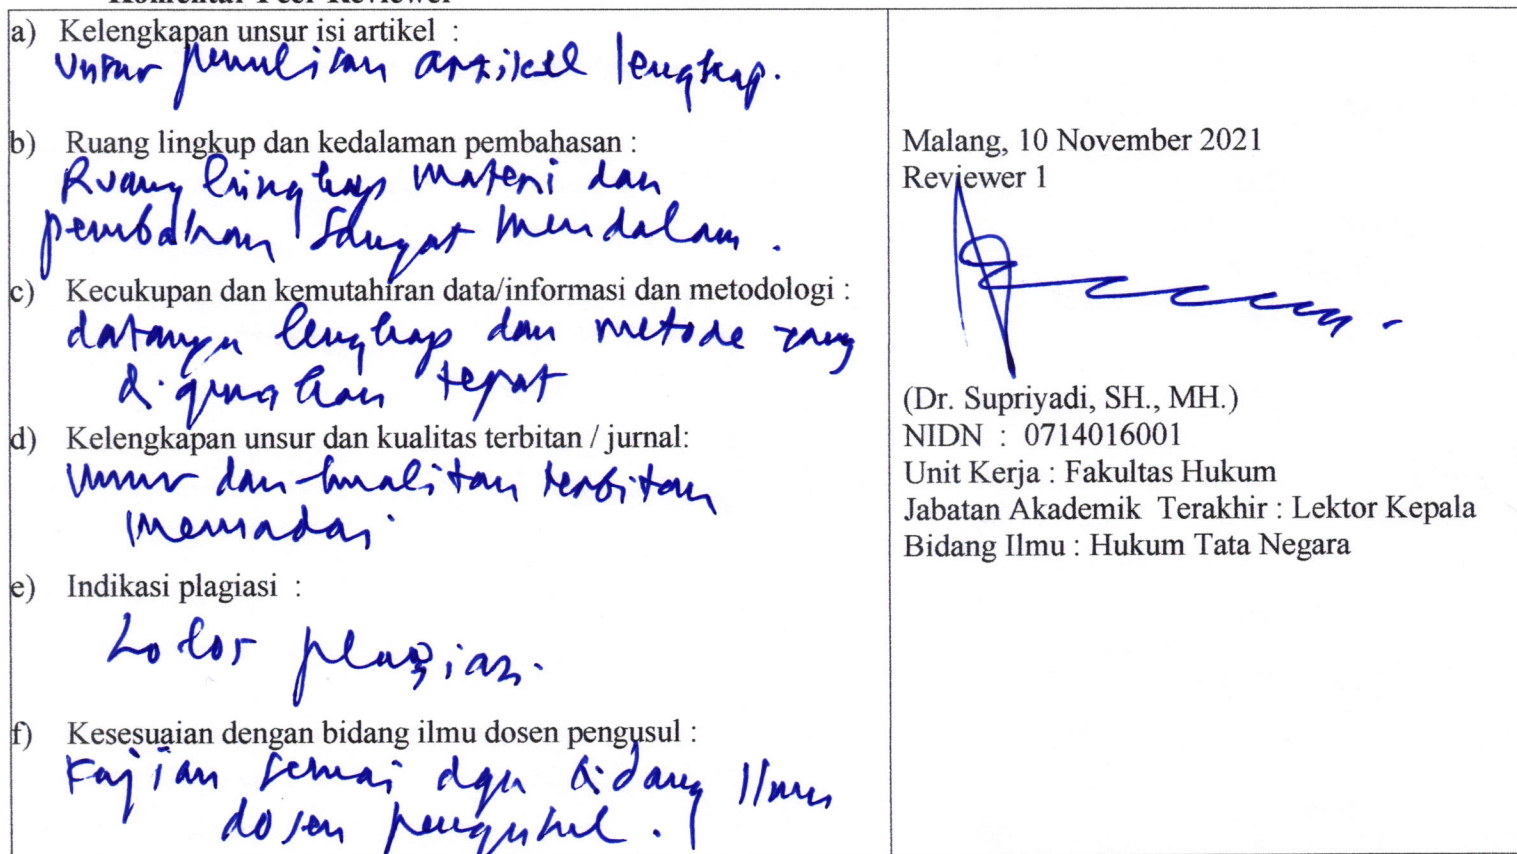 Komentar Peer Reviewer
a) Kelengkapan unsur isi artikel :
Unsur penulisan artikel lengkap.
b) Ruang lingkup dan kedalaman pembahasan :
Ruang lingkup materi dan
pembahasan sangat mendalam.
c) Kecukupan dan kemutahiran data/informasi dan metodologi :
datanya lengkap dan metode yang
digunakan tepat
d) Kelengkapan unsur dan kualitas terbitan / jurnal:
Unsur dan kualitas terbitan
memadai
e) Indikasi plagiasi :
Lolos plagiasi.
f) Kesesuaian dengan bidang ilmu dosen pengusul :
Kajian sesuai dgn bidang Ilmu
dosen pengusul.
Malang, 10 November 2021
Reviewer 1
(Dr. Supriyadi, SH., MH.)
NIDN : 0714016001
Unit Kerja : Fakultas Hukum
Jabatan Akademik Terakhir : Lektor Kepala
Bidang Ilmu : Hukum Tata Negara